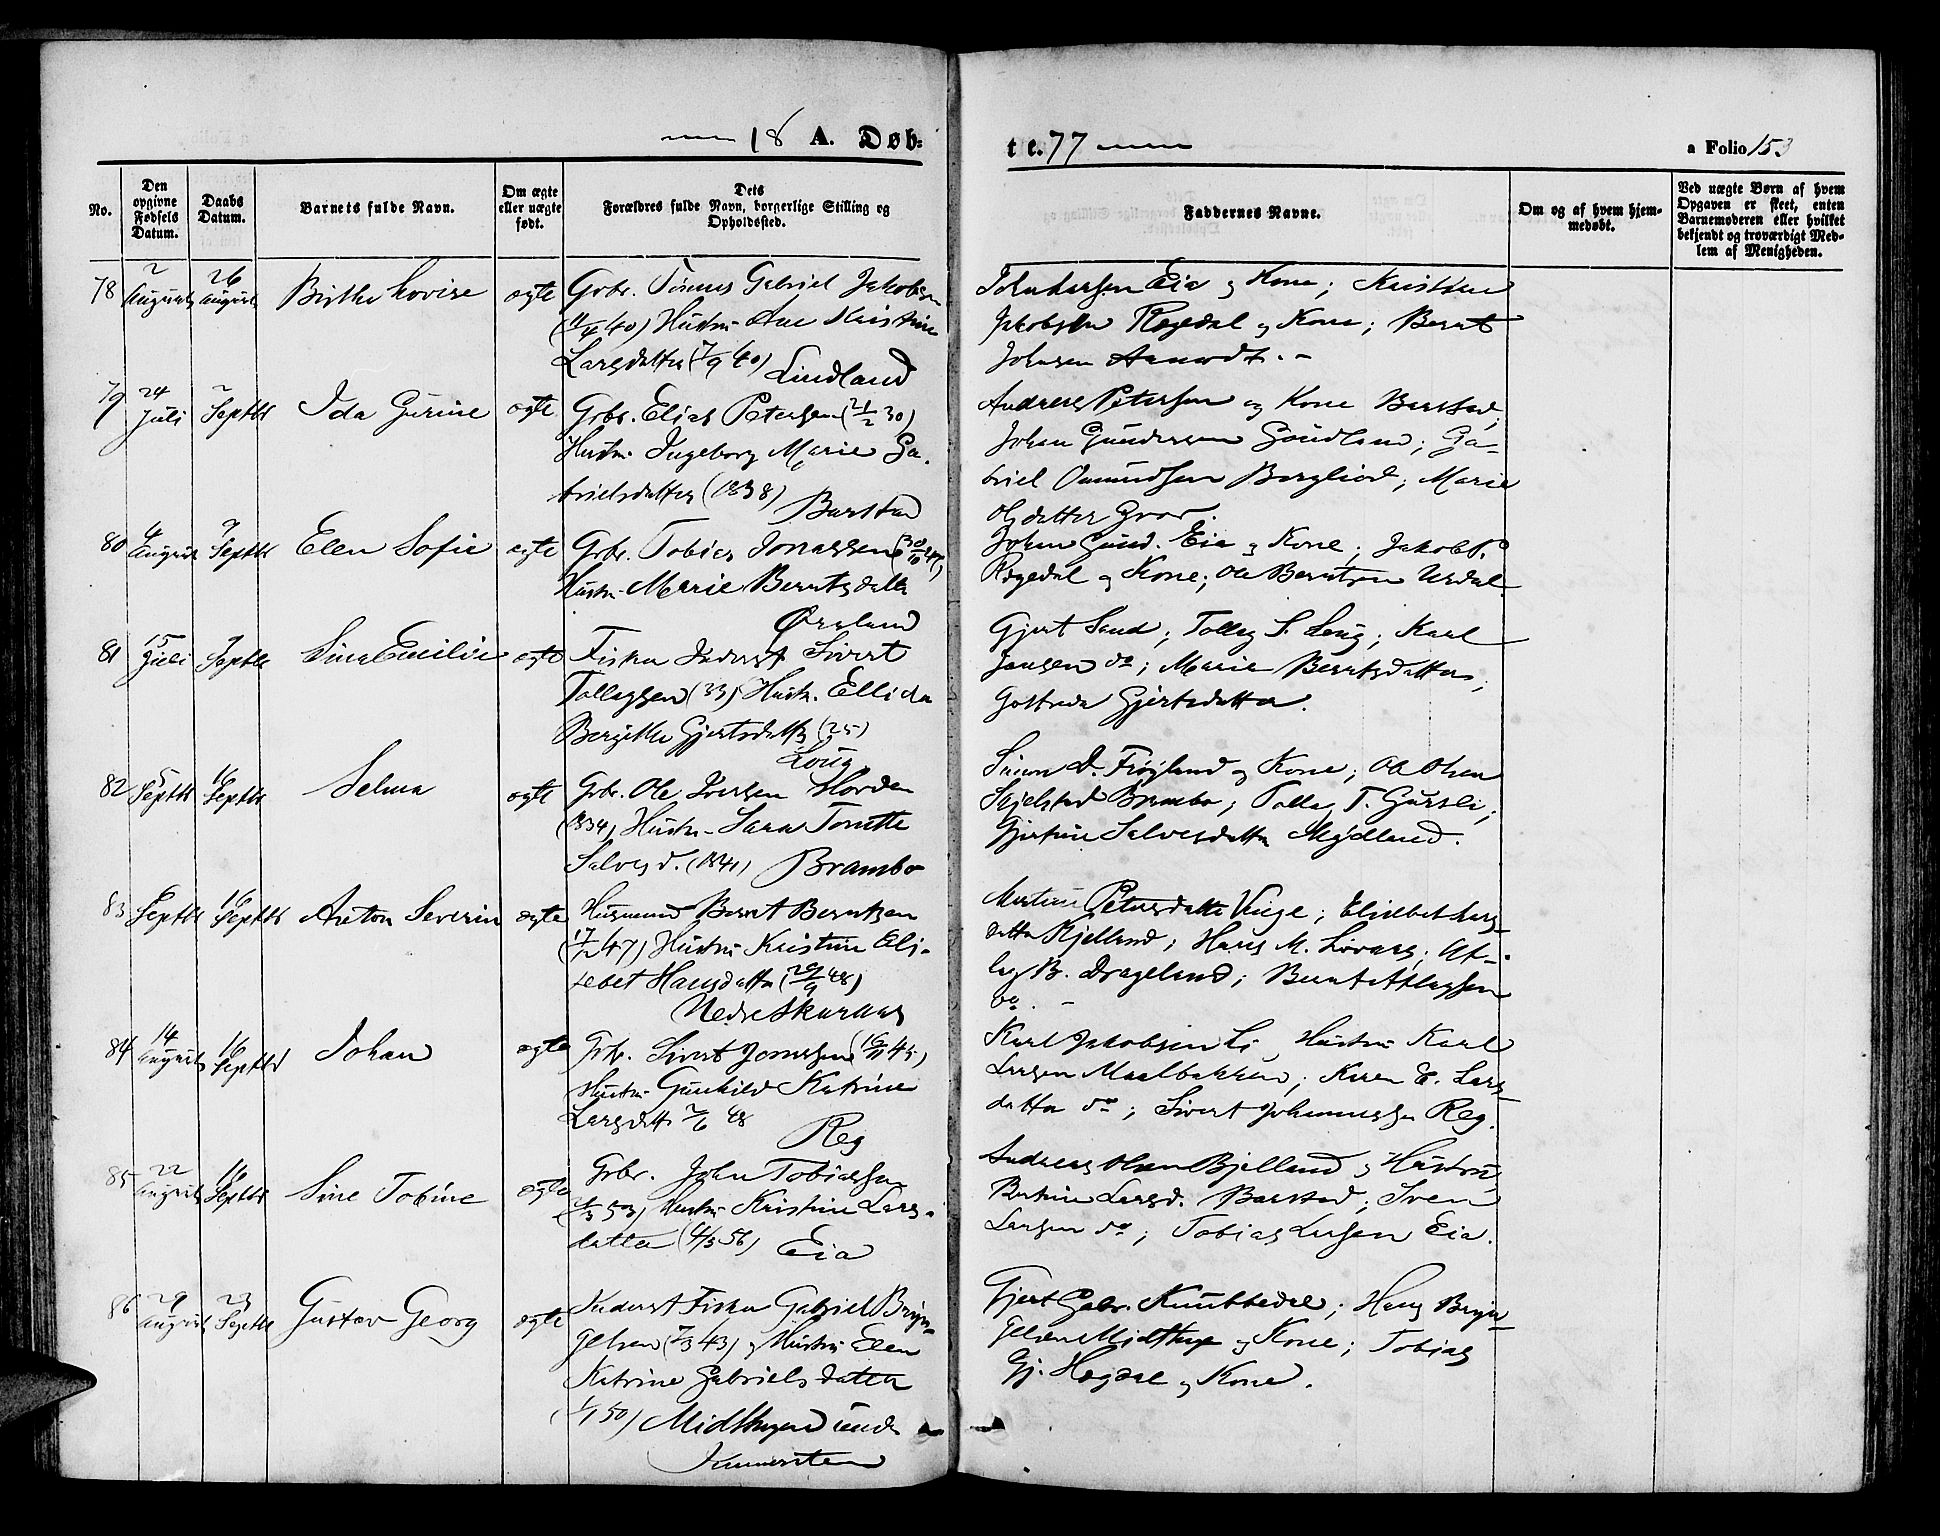 18 A. Døb-
te. 77
a Folio 153
No.
Den opgivne Fødsels Datum.
Daabs Datum.
Barnets fulde Navn.
Om ægte eller uægte født.
Dets Forældres fulde Navn, borgerlige Stilling og Opholdssted.
Faddernes Navne.
Om og af hvem hjemmedøbt.
Ved uægte Børn af hvem Opgaven er skeet, enten Barnemoderen eller hvilket bekjendt og troværdigt Medlem af Menigheden.
78 2 August 26 August Birthe Lovise ægte Grbr. Tønnes Gabriel Jakobsen
(11/4 40) Hustru Ane Kristine
Larsdatter (7/9 40) Lindland
Eia og Kone; Kristian
Jakobsen Rægedal og Kone; Bernt
Johnsen Aamodt.
79 24 Juli 2 Septbr Ida Gurine ægte Grbr. Elias Petersen (21/2 30)
Hustru Ingeborg Marie Ga-
brielsdatter (1838) Barstad
Andreas Petersen og Kone Barstad;
Johan Gundersen Goudland; Ga-
briel Omundsen Bergliod; Marie
Olsdatter
80 4 August 2 Septbr Elen Sofie ægte Grbr. Tobias Jonassen (30/10 47)
Hustru Marie Berntsdatter
Ørsland
Johan Gund. Eia og Kone; Jakob T.
Rægedal og Kone; Ole Berntsen Urdal
81 15 Juli 2 Septbr Sina Emilie ægte Fisker Inderst Sivert
Tollagsen (33) Hustru Ellida
Bergitte Gjertsdatter (25)
Loug
Gjert Sand; Tollag S. Loug; Karl
Jansen do; Marie Berntsdatter;
Gjertsdatter.
82 5 Septbr 16 Septbr Selma ægte Grbr. Ole Iversen Horden
(1834) Hustru Sara Tonette
Salvesd. (1841) Brambo
Simon D. Frøyland og Kone; Ole Olsen
Skjelstad Brambo; Tollag T. Gursli;
Gjertine Salvesdatter Mydland.
83 Septbr 16 Septbr Anton Severin ægte Husmand Bernt Berntsen
(17/2 47) Hustru Kristine Eli-
sebet Hansdatter (29/9 48)
Nedre Skaraas
Martine Petersdatter Veige; Elisebet Lars-
datter Kjelland; Hans M. Løvaas; At-
lag B. Drageland; Bernt Atlagsen
do.
84 14 August 16 Septbr Johan ægte Grbr. Sivert Jonassen (16/11 45)
Hustru Gunhild Katrine
Larsdatter 2/6 48
Reg
Karl Jakobsen Li, Hustru Karl
Larsen Maalbakken; Karen E. Lars-
datter do; Sivert Johannessen Reg.
85 22 August 16 Septbr Sine Tobine ægte Grbr. John Tobiassen
53) Hustru Kristine Lars-
datter (4/5 56) Eia
Andreas Olsen Bjelland og Hustru;
Bertine Larsd. Barstad; Sven
Larsen do; Tobias Larsen Eia.
86 29 August 23 Septbr Gustav Georg ægte Inderst Fisker Gabriel Bryn-
gelsen (7/3 43) og Hustru Elen
Katrine Gabrielsdatter
(1/1 50) Midthogen under
Immersten
Gjert Gabr. Knubbedal; Hans Bryn-
gelsen Midthoge og Kone; Tobias
Gj. Hægdal og Kone.